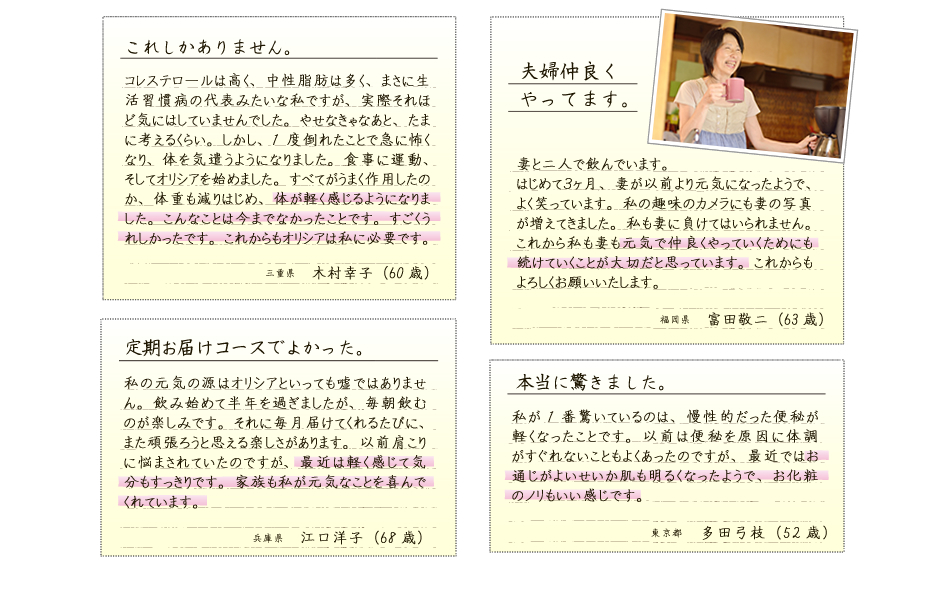 これしかありません。
コレステロールは高く、中性脂肪は多く、まさに生
活習慣病の代表みたいな私ですが、実際それほ
ど気にはしていませんでした。やせなきゃなあと、たま
に考えるくらい。しかし、1度倒れたことで急に怖く
なり、体を気遣うようになりました。食事に運動、
そしてオリシアを始めました。すべてがうまく作用したの
か、体重も減りはじめ、体が軽く感じるようになりま
した。こんなことは今までなかったことです。すごくう
れしかったです。これからもオリシアは私に必要です。
三重県 木村幸子（60歳）
夫婦仲良く
やってます。
妻と二人で飲んでいます。
はじめて3ヶ月、妻が以前より元気になったようで、
よく笑っています。私の趣味のカメラにも妻の写真
が増えてきました。私も妻に負けてはいられません。
これから私も妻も元気で仲良くやっていくためにも
続けていくことが大切だと思っています。これからも
よろしくお願いいたします。
福岡県 富田敬二（63歳）
定期お届けコースでよかった。
私の元気の源はオリシアといっても嘘ではありませ
ん。飲み始めて半年を過ぎましたが、毎朝飲む
のが楽しみです。それに毎月届けてくれるたびに、
また頑張ろうと思える楽しさがあります。以前肩こり
に悩まされていたのですが、最近は軽く感じて気
分もすっきりです。家族も私が元気なことを喜んで
くれています。
兵庫県 江口洋子（68歳）
本当に驚きました。
私が1番驚いているのは、慢性的だった便秘が
軽くなったことです。以前は便秘を原因に体調
がすぐれないこともよくあったのですが、最近ではお
通じがよいせいか肌も明るくなったようで、お化粧
のノリもいい感じです。
東京都 多田弓枝（52歳）